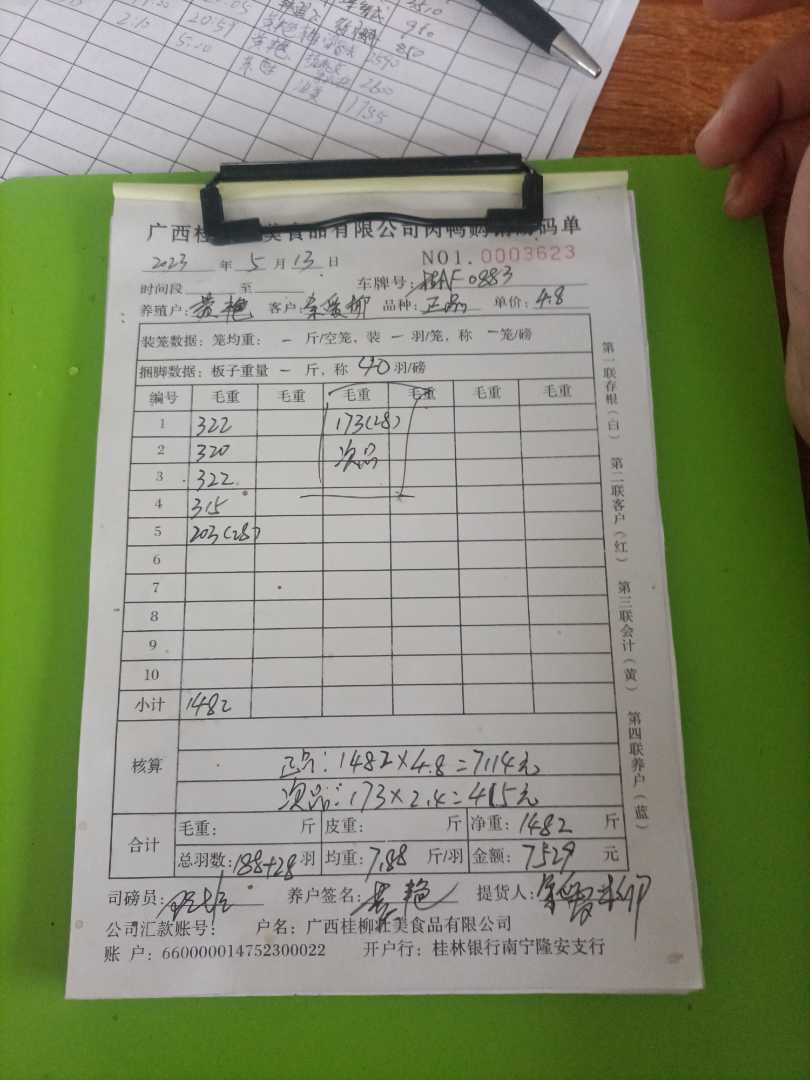 960
850
20:59
2590
2.10
5.10
2600
1785
广西桂 美食品有限公司肉鸭购销磅码单
2023 年 5 月 13 日 NO1.0003623
时间段 至 车牌号: 0883
养殖户: 黄艳 客户: 柳 品种: 正品 单价: 4.8
装笼数据: 笼均重: 一 斤/空笼, 装 一 羽/笼, 称 一 笼/磅
捆脚数据: 板子重量 一 斤, 称 40 羽/磅
编号 毛重 毛重 毛重 毛重 毛重 毛重
1 322 173(28)
2 320 次品
3 322
4 315
5 203(28)
6
7
8
9
10
小计 1482
核算
正品: 1482×4.8=7114元
次品: 173×2.4=415元
合计 毛重: 斤 皮重: 斤 净重: 1482 斤
总羽数: 188+28 羽 均重: 7.88 斤/羽 金额: 7529 元
司磅员: 养户签名: 黄艳 提货人:
公司汇款账号: 户名: 广西桂柳壮美食品有限公司
账 户: 660000014752300022 开户行: 桂林银行南宁隆安支行
第一联存根(白) 第二联客户(红) 第三联会计(黄) 第四联养户(蓝)